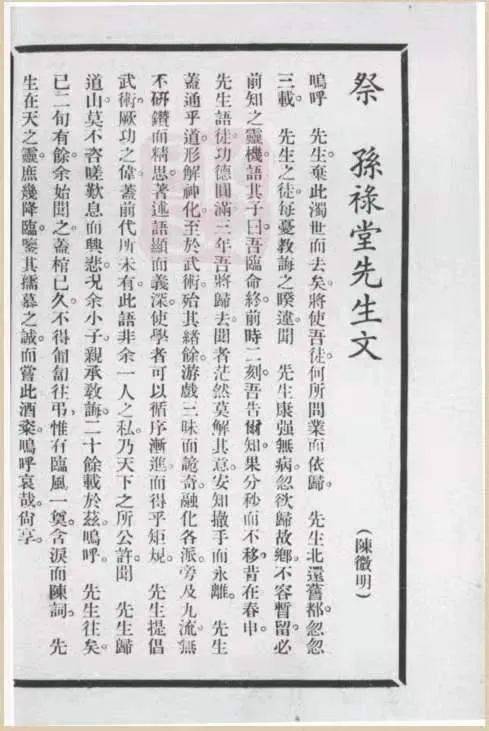 祭 孫祿堂先生文
(陳微明)
嗚呼 先生棄此濁世而去矣將使吾徒何所問業而依歸。 先生北還舊都忽忽
三載。 先生之徒每憂教誨之暌違聞 先生康强無病忽欲歸故鄉不容暫留必
前知之靈機語其子曰吾臨命終前時二刻吾告爾知果分秒而不移昔在春申。
先生語徒功德圓滿三年吾將歸去聞者茫然莫解其意安知撤手而永離。 先生
蓋通乎道形解神化至於武術殆其緒餘游戲三昧而詭奇融化各派旁及九流無
不研鑽而精思著述語顯而義深使學者可以循序漸進而得乎矩規。 先生提倡
武術厥功之偉蓋前代所未有此語非余一人之私乃天下之所公許聞 先生歸
道山莫不咨嗟歎息而興悲況余小子親承教誨二十餘載於茲嗚呼。 先生往矣。
已二旬有餘余始聞之蓋棺已久不得匍匐往弔惟有臨風一奠含淚而陳詞。 先
生在天之靈庶幾降臨鑒其孺慕之誠而嘗此酒粢嗚呼哀哉尙享。